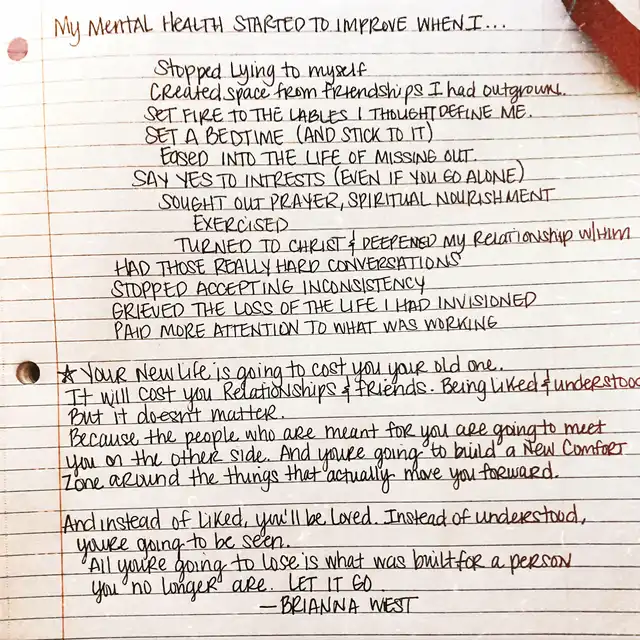 My Mental Health started to improve when I...
Stopped lying to myself
Created space from friendships I had outgrown.
Set fire to the lables I thought define me.
Set a bedtime (and stick to it)
Eased into the life of missing out.
Say yes to intrests (even if you go alone)
Sought out prayer, spiritual nourishment
Exercised
Turned to Christ & deepened my relationship w/Him
Had those really hard conversations
Stopped accepting inconsistency
Grieved the loss of the life I had invisioned
Paid more attention to what was working
★ Your New Life is going to cost you your old one.
It will cost you Relationships & friends. Being liked & understood
But it doesnt matter.
Because the people who are meant for you are going to meet
you on the other side. And youre going to build a New Comfort
Zone around the things that actually move you forward.
And instead of liked, you'll be loved. Instead of understood,
youre going to be seen.
All you're going to lose is what was built for a person
you no longer are. LET IT GO
—BRIANNA WEST